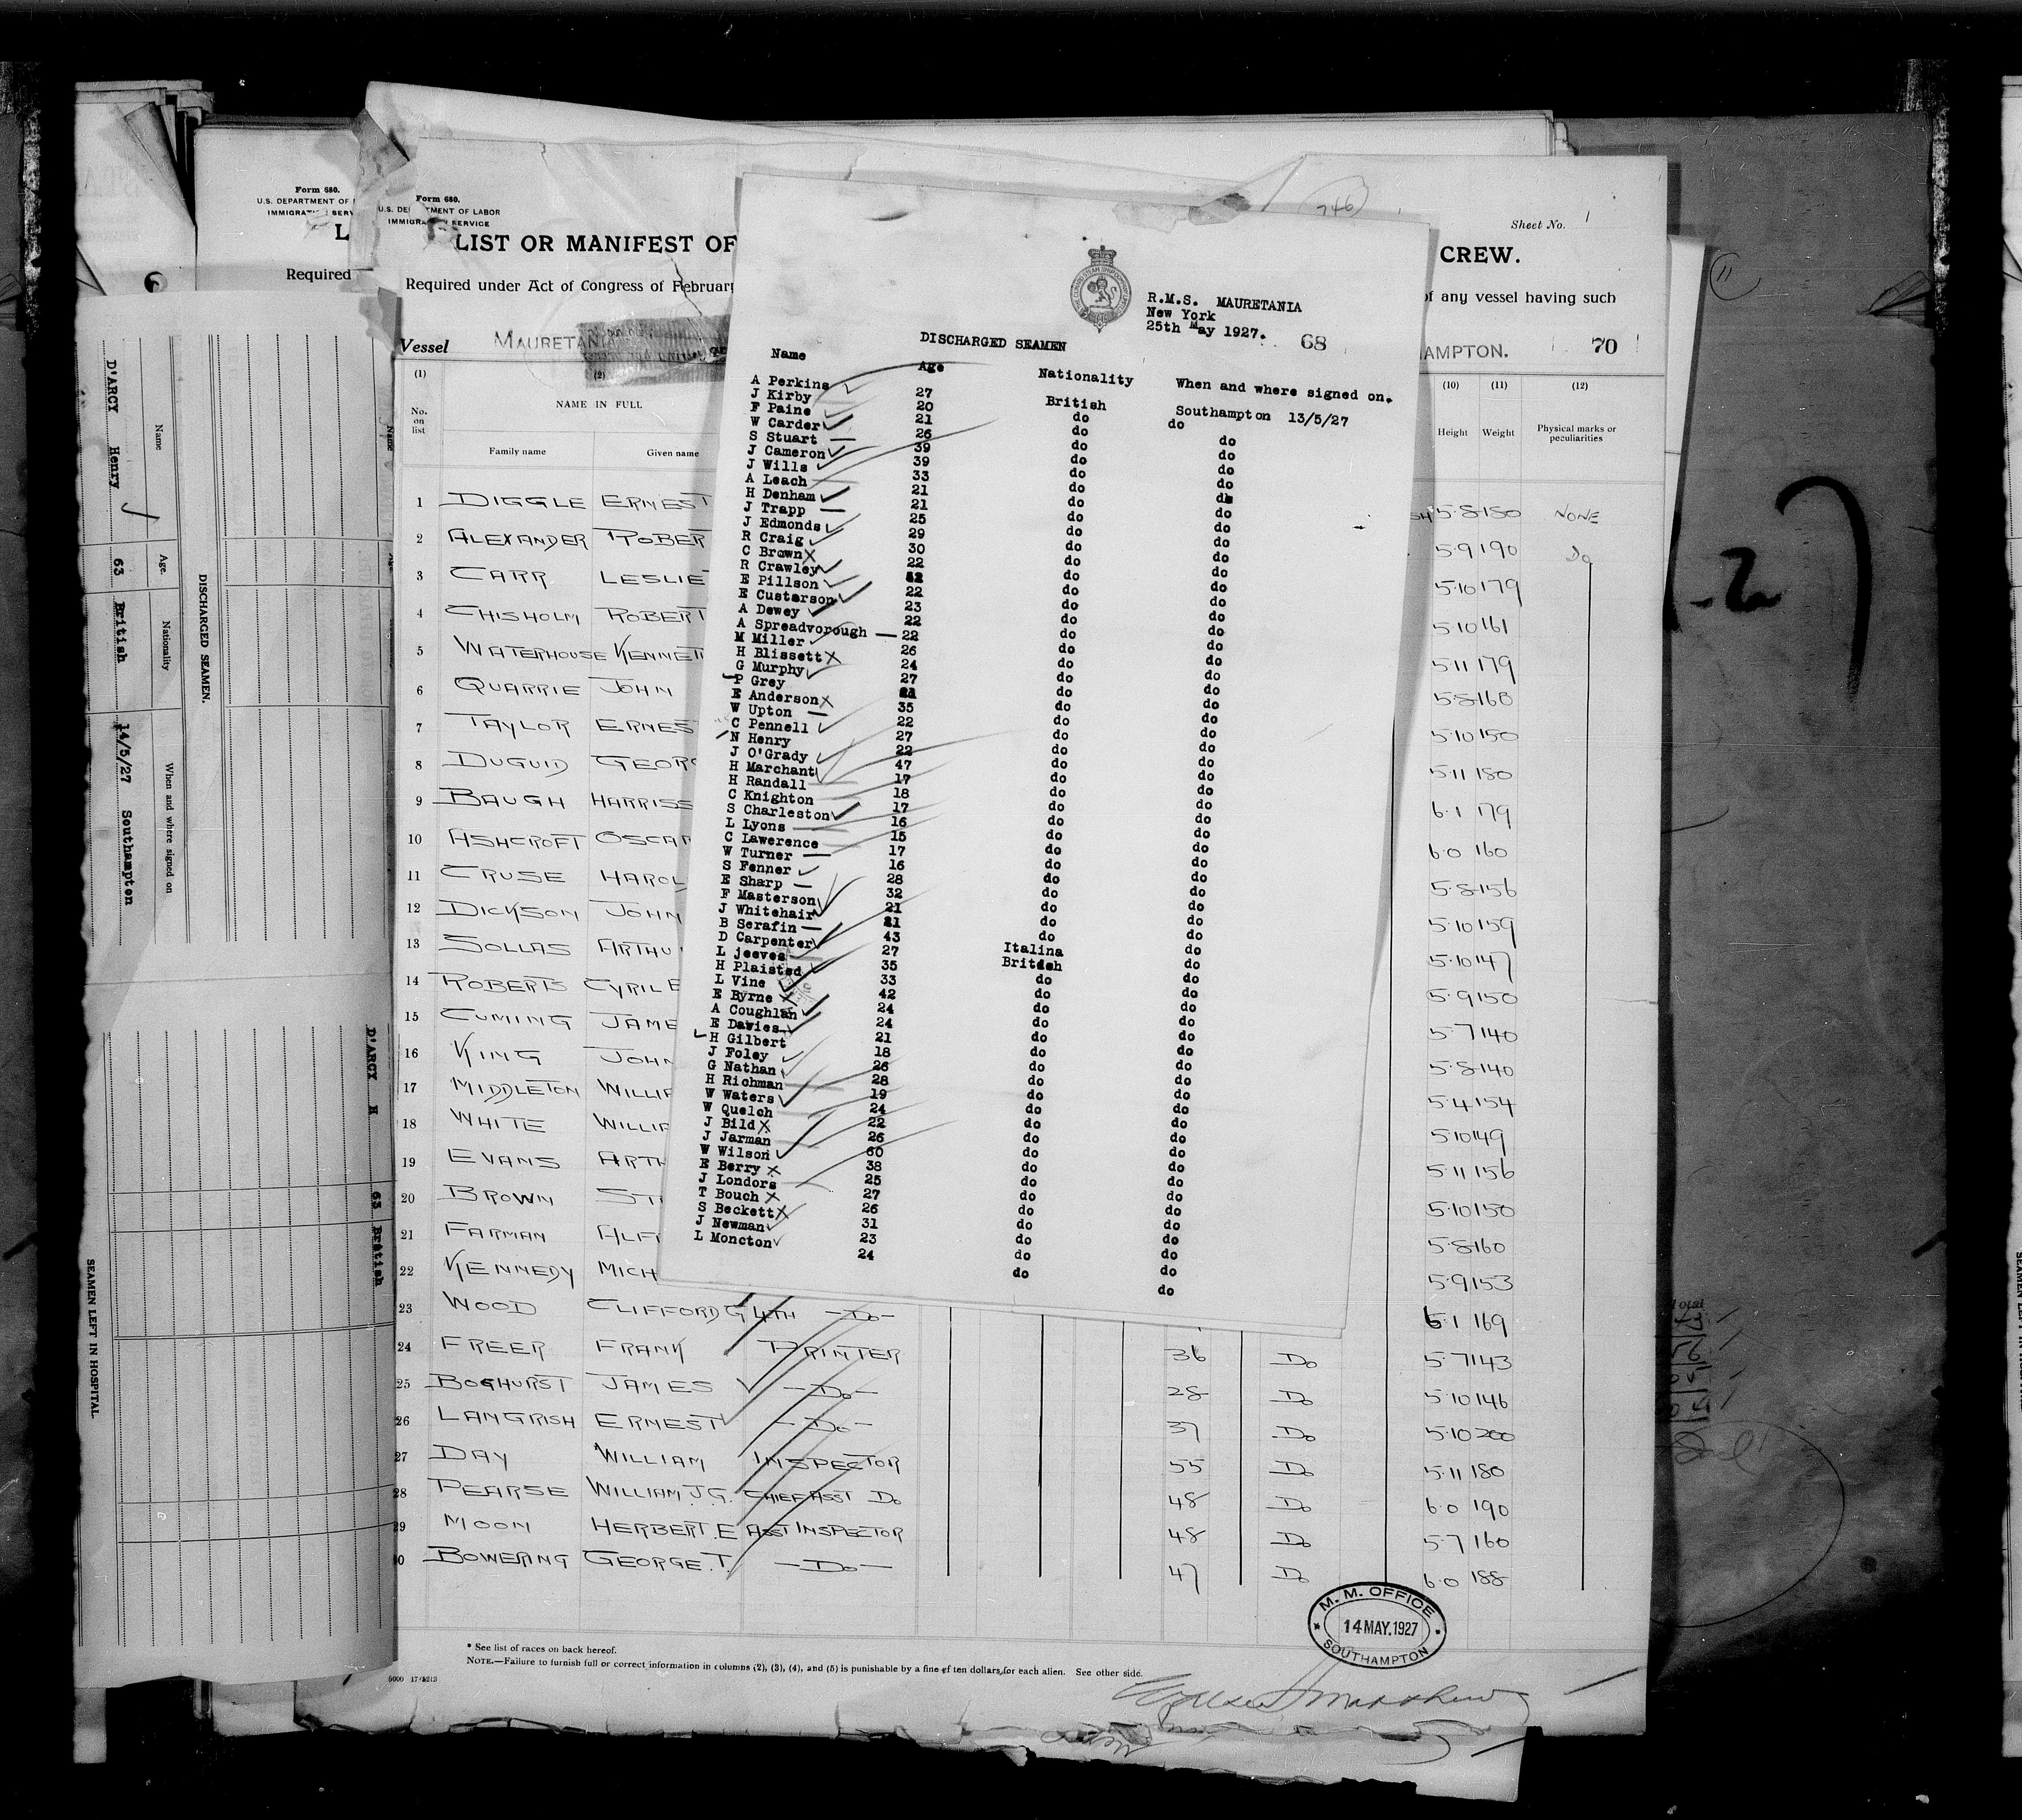 Form 680.
U.S. DEPARTMENT OF
IMMIGRATION SERV
L
Required
Form 680.
U.S. DEPARTMENT OF LABOR
IMMIGRATION SERVICE
LIST OR MANIFEST OF CREW.
Sheet No. 1
Required under Act of Congress of February of any vessel having such
Vessel MAURETANIA AMPTON. 70
(1) (2) (10) (11) (12)
No. on list NAME IN FULL Height Weight Physical marks or peculiarities
Family name Given name
1 DIGGLE ERNEST 5·8 180 NONE
2 ALEXANDER ROBER 5·9 190 Do
3 CARR LESLIE 5·10 179
4 CHISHOLM ROBERT 5·10 161
5 WATERHOUSE KENNET 5·11 179
6 QUARRIE JOHN 5·8 160
7 TAYLOR ERNES 5·10 150
8 DUGUID GEOR 5·11 180
9 BAUGH HARRISS 6·1 179
10 ASHCROFT OSCAR 6·0 160
11 CRUSE HAROL 5·8 156
12 DICKSON JOHN 5·10 159
13 SOLLAS ARTHU 5·10 147
14 ROBERTS CYRIL E 5·9 150
15 CUMING JAME 5·7 140
16 KING JOHN 5·8 140
17 MIDDLETON WILLIA 5·4 154
18 WHITE WILLIA 5·10 149
19 EVANS ARTH 5·11 156
20 BROWN ST 5·10 150
21 FARMAN ALF 5·8 160
22 KENNEDY MICH 5·9 153
23 WOOD CLIFFORD G 4TH —Do— 6·1 169
24 FREER FRANK PRINTER 36 Do 5·7 143
25 BOGHURST JAMES —Do— 28 Do 5·10 146
26 LANGRISH ERNEST —Do— 37 Do 5·10 200
27 DAY WILLIAM INSPECTOR 55 Do 5·11 180
28 PEARSE WILLIAM J.G. CHIEF ASST Do 48 Do 6·0 190
29 MOON HERBERT.E ASST INSPECTOR 48 Do 5·7 160
30 BOWERING GEORGE.T. —Do— 47 Do 6·0 188
M. M. OFFICE
14 MAY.1927
SOUTHAMPTON
* See list of races on back hereof.
NOTE.—Failure to furnish full or correct information in columns (2), (3), (4), and (5) is punishable by a fine of ten dollars for each alien. See other side.
R.M.S. MAURETANIA
New York
25th May 1927.
68
DISCHARGED SEAMEN
Name Age Nationality When and where signed on.
A Perkins 27 British Southampton 13/5/27
J Kirby 20 do do
F Paine 21 do do
W Carder 26 do do
S Stuart 39 do do
J Cameron 39 do do
J Wills 33 do do
A Leach 21 do do
H Denham 21 do do
J Trapp 25 do do
J Edmonds 29 do do
R Craig 30 do do
C Brown 22 do do
R Crawley 42 do do
E Pillson 22 do do
E Custerson 23 do do
A Dewey 22 do do
A Spreadvorough 22 do do
M Miller 26 do do
H Blissett 24 do do
G Murphy 27 do do
P Grey 21 do do
E Anderson 35 do do
W Upton 22 do do
C Pennell 27 do do
N Henry 22 do do
J O'Grady 47 do do
H Marchant 17 do do
H Randall 18 do do
C Knighton 17 do do
S Charleston 16 do do
L Lyons 15 do do
C Lawerence 17 do do
W Turner 16 do do
S Fenner 28 do do
E Sharp 32 do do
F Masterson 21 do do
J Whitehair 21 do do
B Serafin 43 Italina do
D Carpenter 27 British do
L jeeves 35 do do
H Plaisted 33 do do
L Vine 42 do do
E Byrne 24 do do
A Coughlan 24 do do
E Davies 21 do do
H Gilbert 18 do do
J Foley 26 do do
G Nathan 28 do do
H Richman 19 do do
W Waters 24 do do
W Quelch 22 do do
J Bild 26 do do
J Jarman 60 do do
W Wilson 38 do do
E Berry 25 do do
J Londors 27 do do
T Bouch 26 do do
S Beckett 31 do do
J Newman 23 do do
L Moncton 24 do do
DISCHARGED SEAMEN.
Name Age. Nationality When and where signed on
D'ARCY Henry 63 British 14/5/27 Southampton
SEAMEN LEFT IN HOSPITAL
D'ARCY H 63 British
11